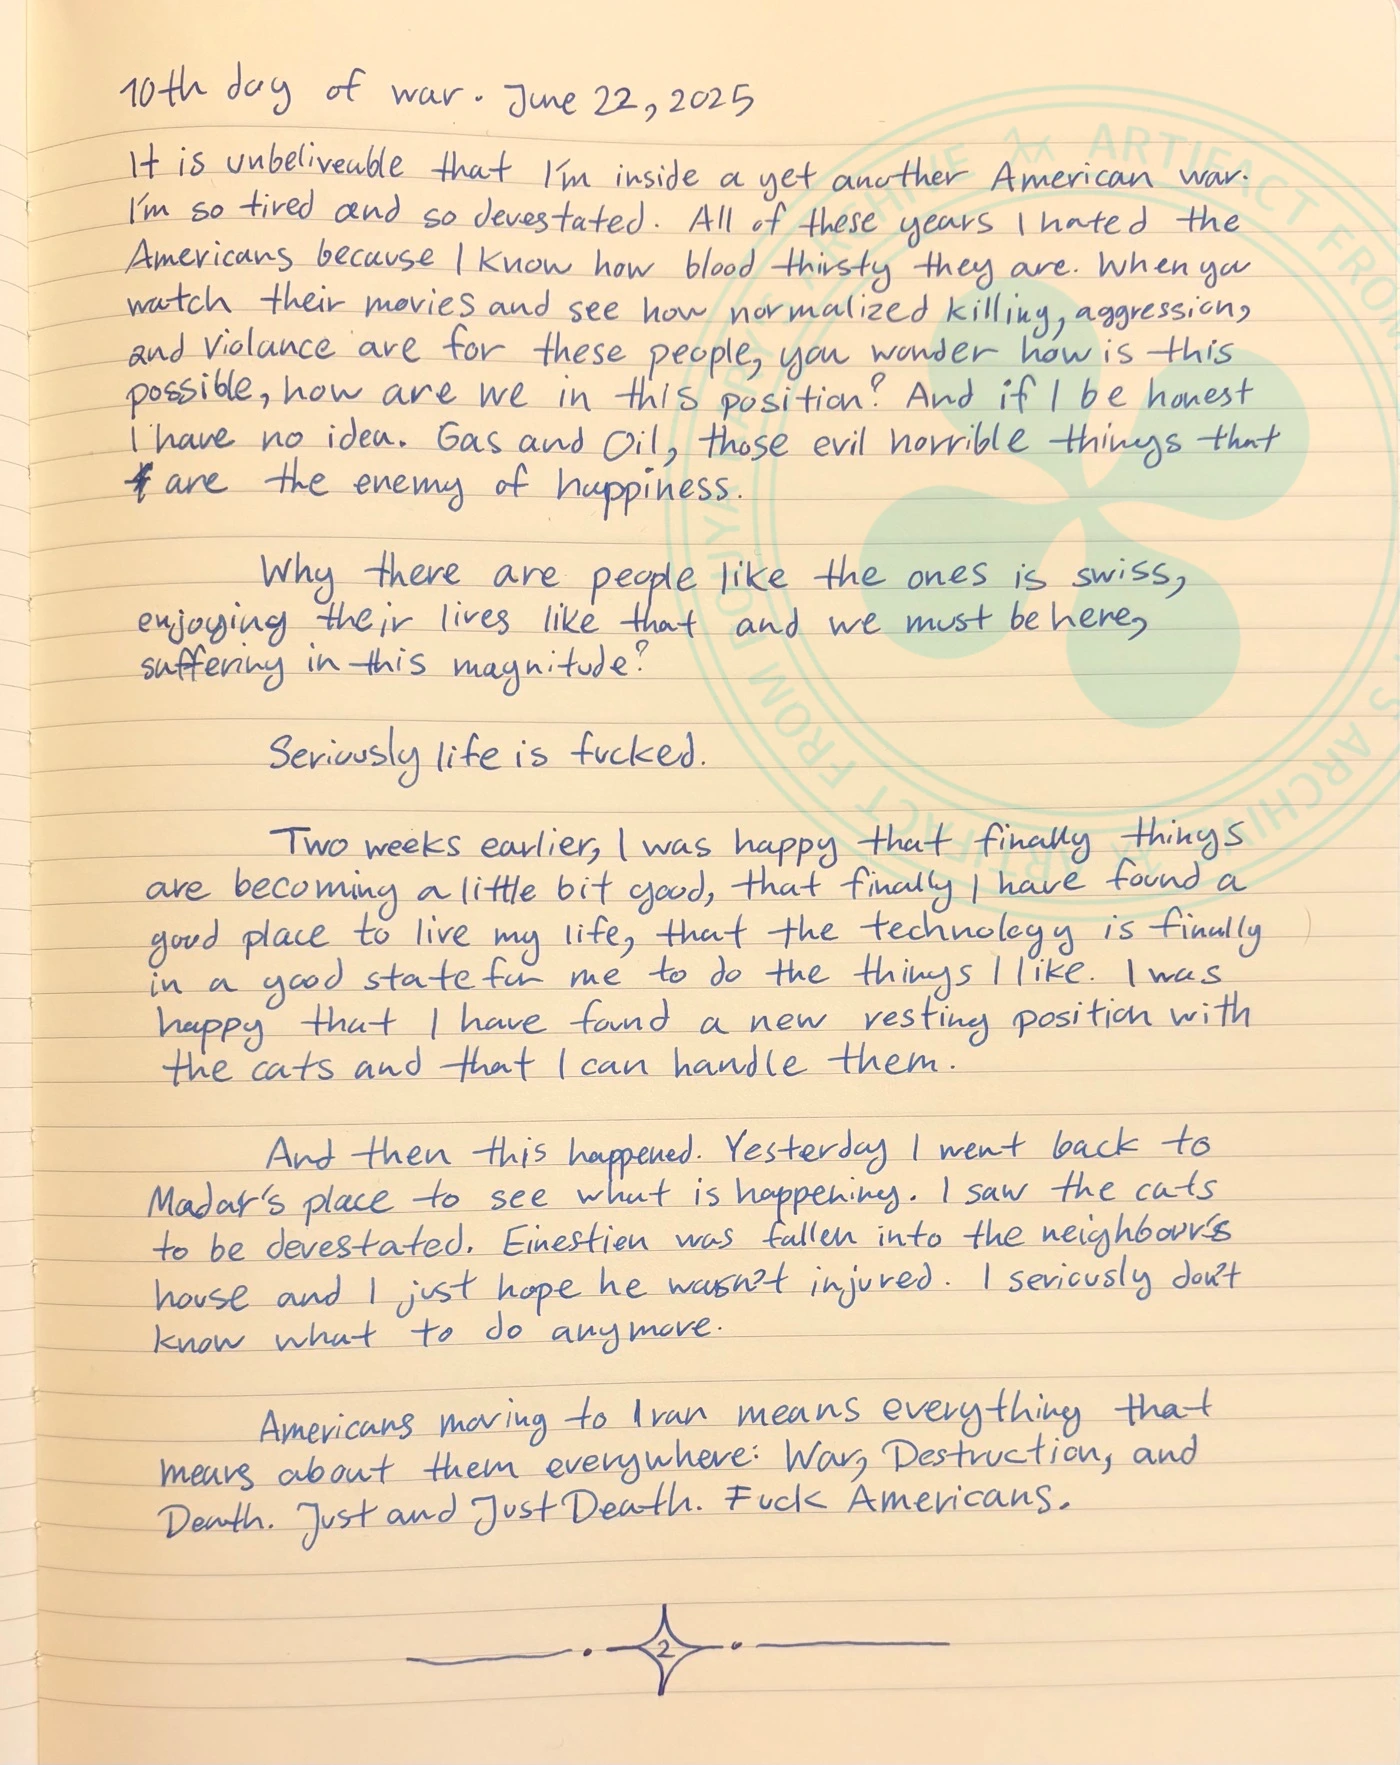 10th day of war. June 22, 2025
It is unbeliveable that I'm inside a yet another American war.
I'm so tired and so devestated. All of these years I hated the
Americans because I know how blood thirsty they are. When you
watch their movies and see how normalized killing, aggression,
and violance are for these people, you wonder how is this
possible, how are we in this position? And if I be honest
I have no idea. Gas and Oil, those evil horrible things that
are the enemy of happiness.
Why there are people like the ones is swiss,
enjoying their lives like that and we must be here,
suffering in this magnitude?
Seriously life is fucked.
Two weeks earlier, I was happy that finally things
are becoming a little bit good, that finally I have found a
good place to live my life, that the technology is finally
in a good state for me to do the things I like. I was
happy that I have found a new resting position with
the cats and that I can handle them.
And then this happened. Yesterday I went back to
Madar's place to see what is happening. I saw the cats
to be devestated. Einestien was fallen into the neighbour's
house and I just hope he wasn't injured. I seriously don't
know what to do anymore.
Americans moving to Iran means everything that
means about them everywhere: War, Destruction, and
Death. Just and Just Death. Fuck Americans.
2
ARTIFACT FROM
ARTIFACT FROM